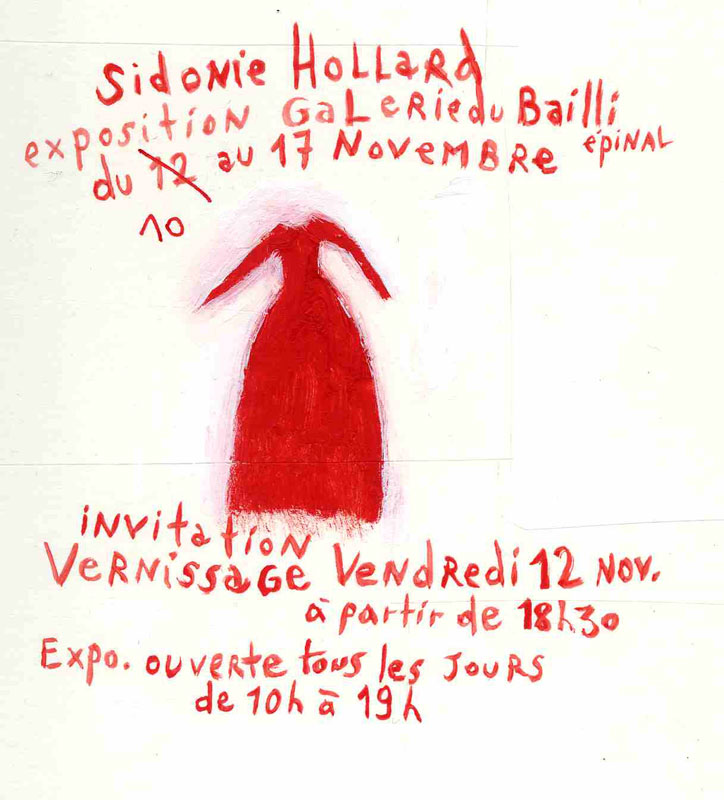 Sidonie Hollard
exposition Galerie du Bailli
épinal
du 12 au 17 Novembre
10
invitation
Vernissage Vendredi 12 Nov.
à partir de 18h30
Expo. ouverte tous les jours
de 10h à 19h